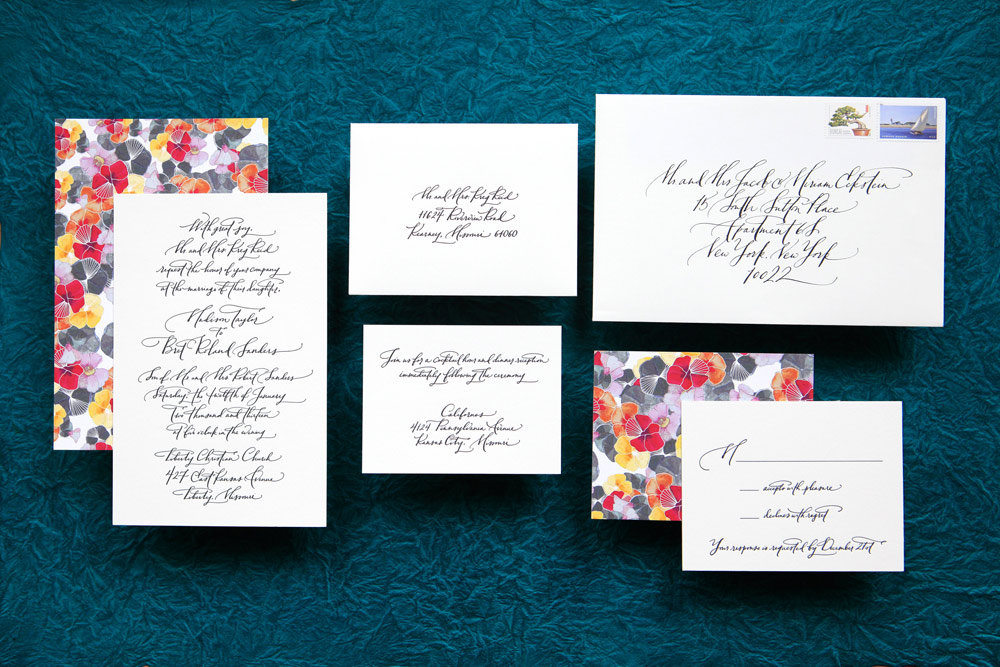 With great joy,
Mr and Mrs Greg Reid
request the honor of your company
at the marriage of their daughter,
Madison Taylor
to
Bret Roland Sanders
Son of Mr and Mrs Robert Sanders
Saturday, the twelfth of January
two thousand and thirteen
at five o'clock in the evening
Liberty Christian Church
427 East Kansas Avenue
Liberty, Missouri
Mr and Mrs Greg Reid
11624 Riverview Road
Kearney, Missouri 64060
Join us for a cocktail hour and dinner reception
immediately following the ceremony
Californos
4124 Pennsylvania Avenue
Kansas City, Missouri
Mr and Mrs Jacob & Miriam Eckstein
15 South Sutton Place
Apartment 6S
New York, New York
10022
M
accepts with pleasure
declines with regret
Your response is requested by December 21st